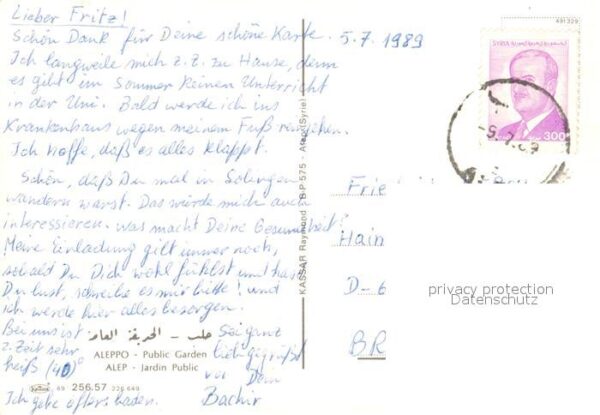 Lieber Fritz!
Schön Dank für Deine schöne Karte. 5.7.1989
Ich langweile mich z.Z. zu Hause, denn
es gibt im Sommer keinen Unterricht
in der Uni. Bald werde ich ins
Krankenhaus wegen meinem Fuß reingehen.
Ich hoffe, daß es alles klappt.
Schön, daß Du mal in Solingen
wandern warst. Das würde mich auch
interessieren. was macht Deine Gesundheit?
Meine Einladung gilt immer noch,
sobald Du Dich wohl fühlst und hast
Du lust, schreibe es mir bitte! und
ich werde hier alles besorgen.
Bei uns ist
z.Zeit sehr
heiß (40)°
Ich gehe öfters baden.
Sei ganz
lieb gegrüßt
von Dein
Bachir
حلب - الحديقة العامة
ALEPPO - Public Garden
ALEP - Jardin Public
69 256.57 226 649
KASSAR Raymond - B.P. 575 - Alep (Syrie)
491329
SYRIA
300
-9.7.89
Frie
Hain
D-6
BR
privacy protection
Datenschutz